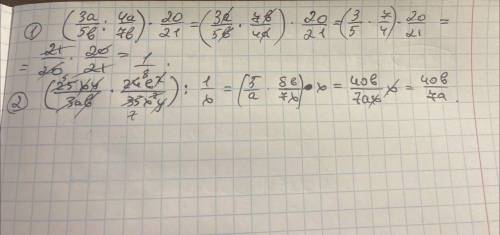 ① (3a/5b : 4a/7b) · 20/21 = (3a/5b · 7b/4a) · 20/21 = (3/5 · 7/4) · 20/21 =
= 21/20 · 20/21 = 1/
② (25xy/3ab · 24b²/35x²y) : 1/x = (5/a · 8b/7x) · x = 40b/7ax x = 40b/7a.